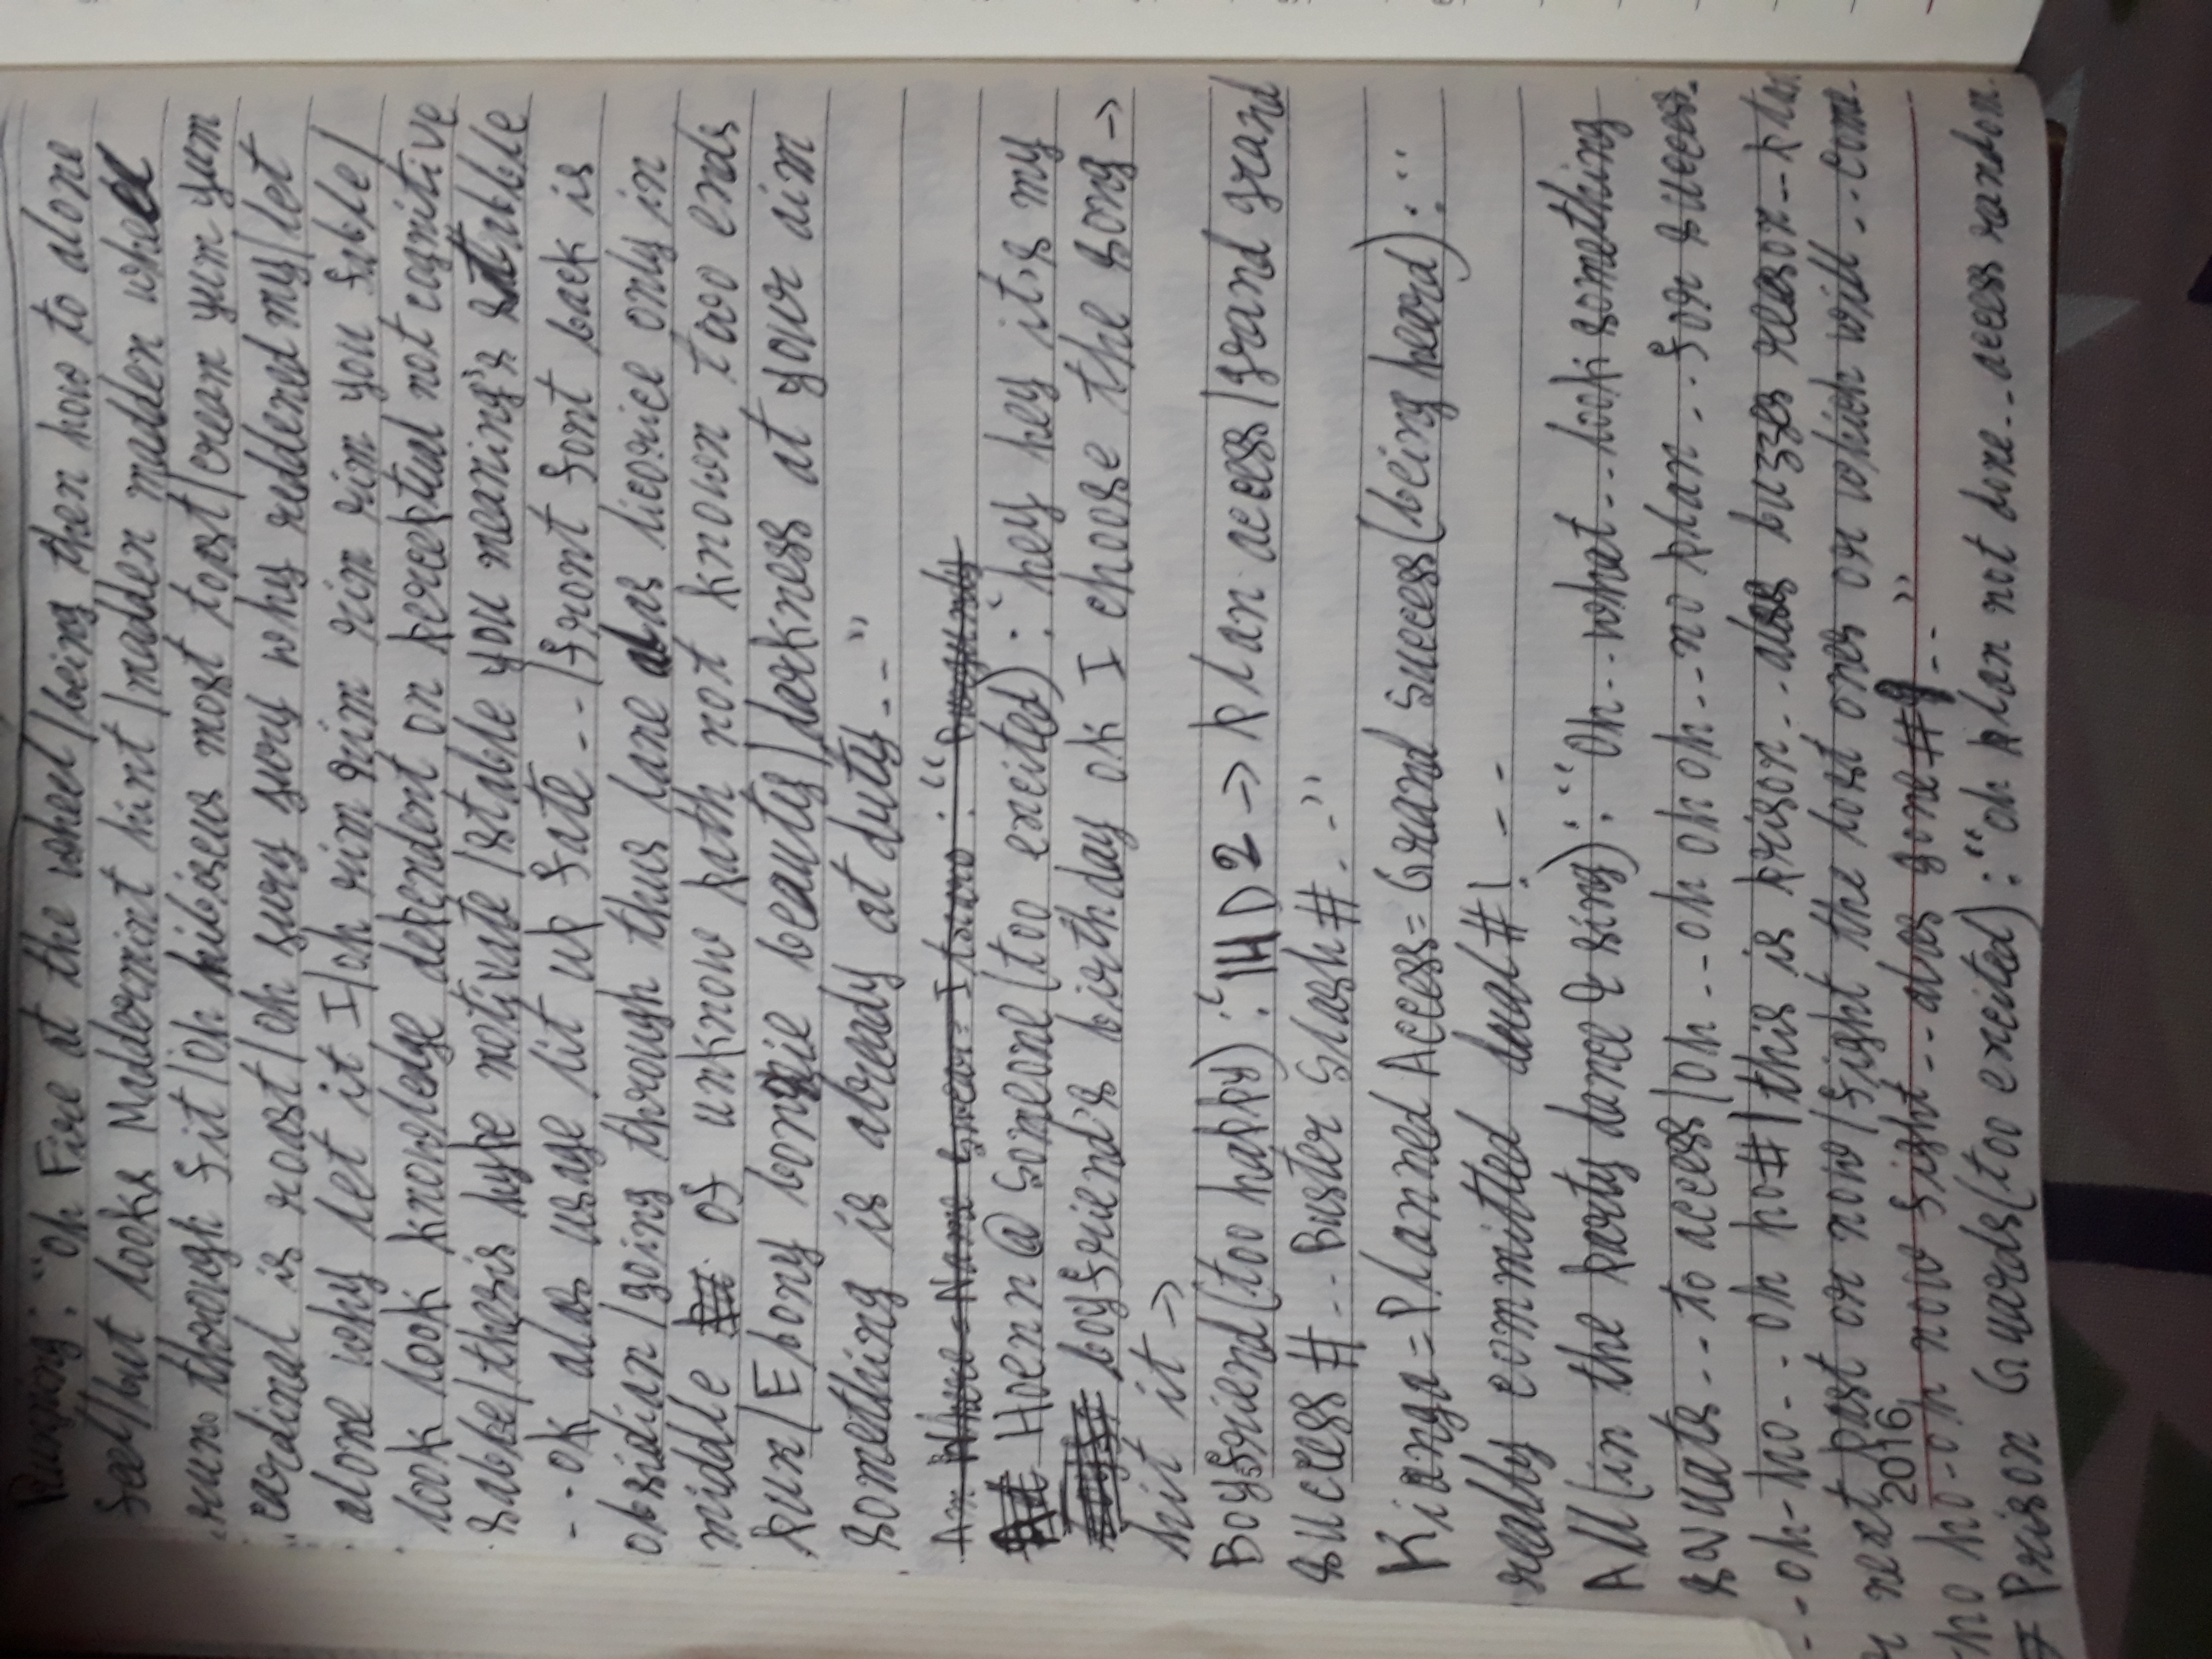 : "Oh Fire at the wheel/being then how to alone
feel/but looks Maddermint hint/madden madden wheel
run through fit/oh hibiscus most toast/cream yum yum
cardinal is roast/oh sury sury why reddened my/let
alone why let it I/oh rim rim rim rim you fable/
look look knowledge dependent on perceptual not cognitive
sable/thesis hype motivate/stable you meaning's stabble
--ok alas usage lit up fate--/front font back is
obsidian/going through thus lane alas licorice only in
middle of unknow path not known two ends
pun/Ebony bonnie beauty/darkness at your aim
something is already at duty--"
Am Where=Name Swear= : "Burgundy
Hoenn@Someone(too excited): "hey hey it's my
boyfriend's birthday ok I choose the song→
hit it→
Boyfriend(too happy): "1HD2→plan access/grand grand
success#--Buster Slash#--"
Kianga=Planned Access=Grand Success(being heard): "
really committed dual#!--
All(in the party dance & sing): "Oh--what--look something
squats--to access/oh--oh oh oh--no plan--for success-
--oh-ho--oh ho#/this is prison--alas buzzes reason--plan
next past or now/fight the lost ones or which will--come-
2016
-ho ho-oh now fight--alas gone#9--"
Prison Guards(too excited): "oh plan not done--access random-